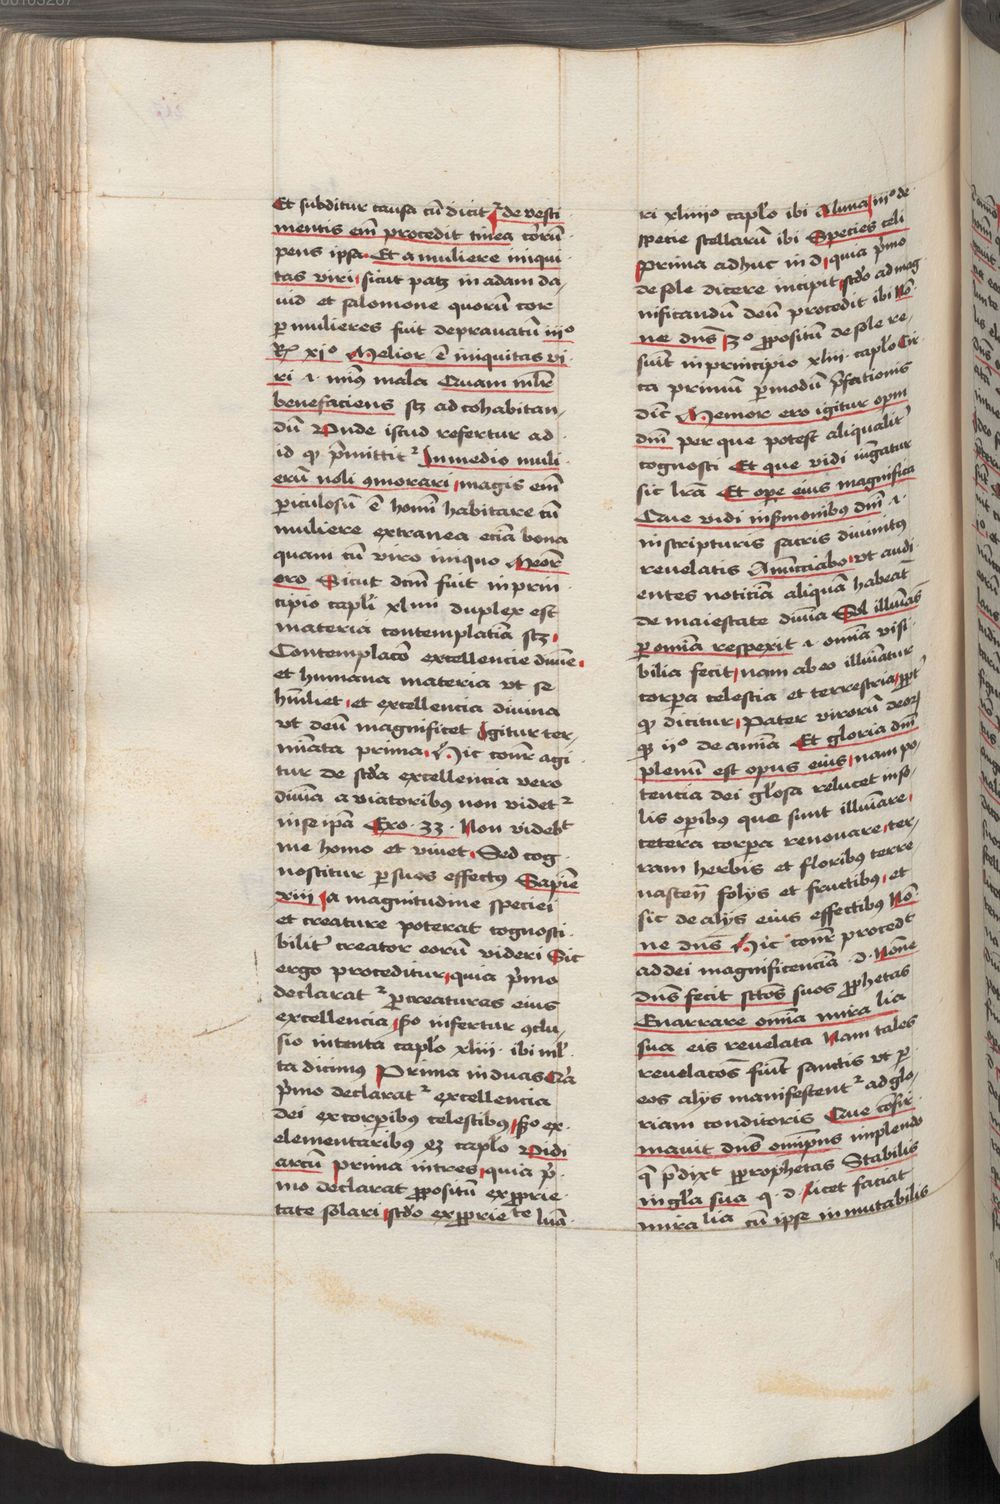 Et subditur causa cū dicit ² de vesti
mentis em̄ procedit tinea cōrūm
pens ipsa · Et a muliere iniqui
tas viri sicut patꝫ in adam da
uid et salomone quorūm cor
ꝑ mulieres fuit depravatūm iiiº
Rͫ xiº Melior ē iniquitas vi
ri .i. min9 mala Quam mlr̄
benefaciens scꝫ ad cohabitan
dū Unde istud refertur ad
id qḋ p̄mittit² In medio muli
erū noli ꝯmorari magis em̄
ꝑiculosū ē homī habitare cū
muliere extranea eciā bona
quam cū viro iniquo Meōr
ero Sicut dcm̄ fuit in prin
cipio capl̓i xliiii duplex est
materia contemplatiā scꝫ
Contemplacō excellencie diuīe
et humana materia vt se
hūiliet et excellencia divina
vt deū magnificet Igitur ter
mīata prima Hic cons̄r agi
tur de scd̓a excellencia vero
diuīa a viatoribus non videt²
in se ip̄a Exo · 33 · Non videbᵗ
me homo et vivet Sed cog
noscitur ꝑ suos effectus Sapīe
xiii a magnitudine speciei
et creature poterat cognosci
bilit̓ creator eorū videri Sic
ergo proceditur quia p̓mo
declarat² ꝑ creaturas eius
excellencia 2º infertur ꝯclu
sio intenta capl̓o xliii · ibi ml̓
ta dicimus Prima in duas q̓a
p̓mo declarat² excellencia
dei ex corꝑibus celestibus 2º ex
elementaribus eꝫ capl̓o Vidi
arcū prima in tres quia p̓
mo declarat ꝓpositū ex ꝓprie
tate solari scd̓o ex ꝓprieᵗᵉ lūa
ri xliiiiº capl̓o ibi A luna iiiº de
specie stellarū ibi Species celi
Prima adhuc in d quia p̓mo
de sole dicere incipit scd̓o ad mag
nificandū deū procedit ibi Nō
ne dn̄s 3º ꝓpositū de sole re
sūit in principio xliii · capl̓o Cir
ca primū ꝑ modū p̄fationis
dic̄ Memor ero igitur opm
dm̄ per que potest aliqualit̓
cognosci Et que vidi iūgatur
sic lr̄a Et opa eius magnifica
Que vidi in ẜmonibus dm̄ .i.
in scripturis sacris divinitus
revelatis Annūciabo vt audi
entes noticiā aliquā habeāt
de maiestate diuīa Sol illuīas
ꝑ omīa respexit .i. omīa visi
bilia fecit nam ab eo illuīatur
corꝑa celestia et terrestria ꝓpt̓
qḋ dicitur Pater virorū deorꝫ
qꝫ iiº de anīa Et gloria dm̄
plenū est opus eius nam po
tencia dei gl̓osa relucet in so
lis oꝑibus que sunt illuīare
cetera corꝑa renouare ter
ram herbis et floribus terre
nascen̄ folijs et fructibus et
sic de alijs eius effectibus Nō
ne dn̄s Hic cons̄r procedᵗ
ad dei magnificenciā · d · Nonne
dn̄s fecit sctōs suos ꝓphetas
Enarrare omīa mirabilia
sua eis revelata Nam tales
revelacōes fiūt sanctis vt ꝑ
eos alijs manifestent² ad glo
riam conditoris Que cōfir
mavit dn̄s omīpns implendo
q̄ p̄dixᵗ ꝑ ꝓphetas Stabilis
in gl̓a sua q · d · licet faciat
mirabilia cū ipse inmutabilis